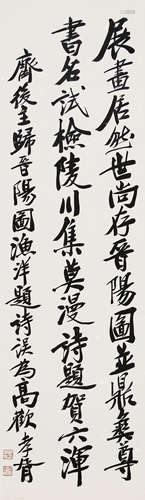 展畫居然世尚存晉陽圖並鼎彝尊
書名試檢陵川集莫漫詩題賀六渾
齊後主歸晉陽圖漁洋題詩誤為高歡孝胥